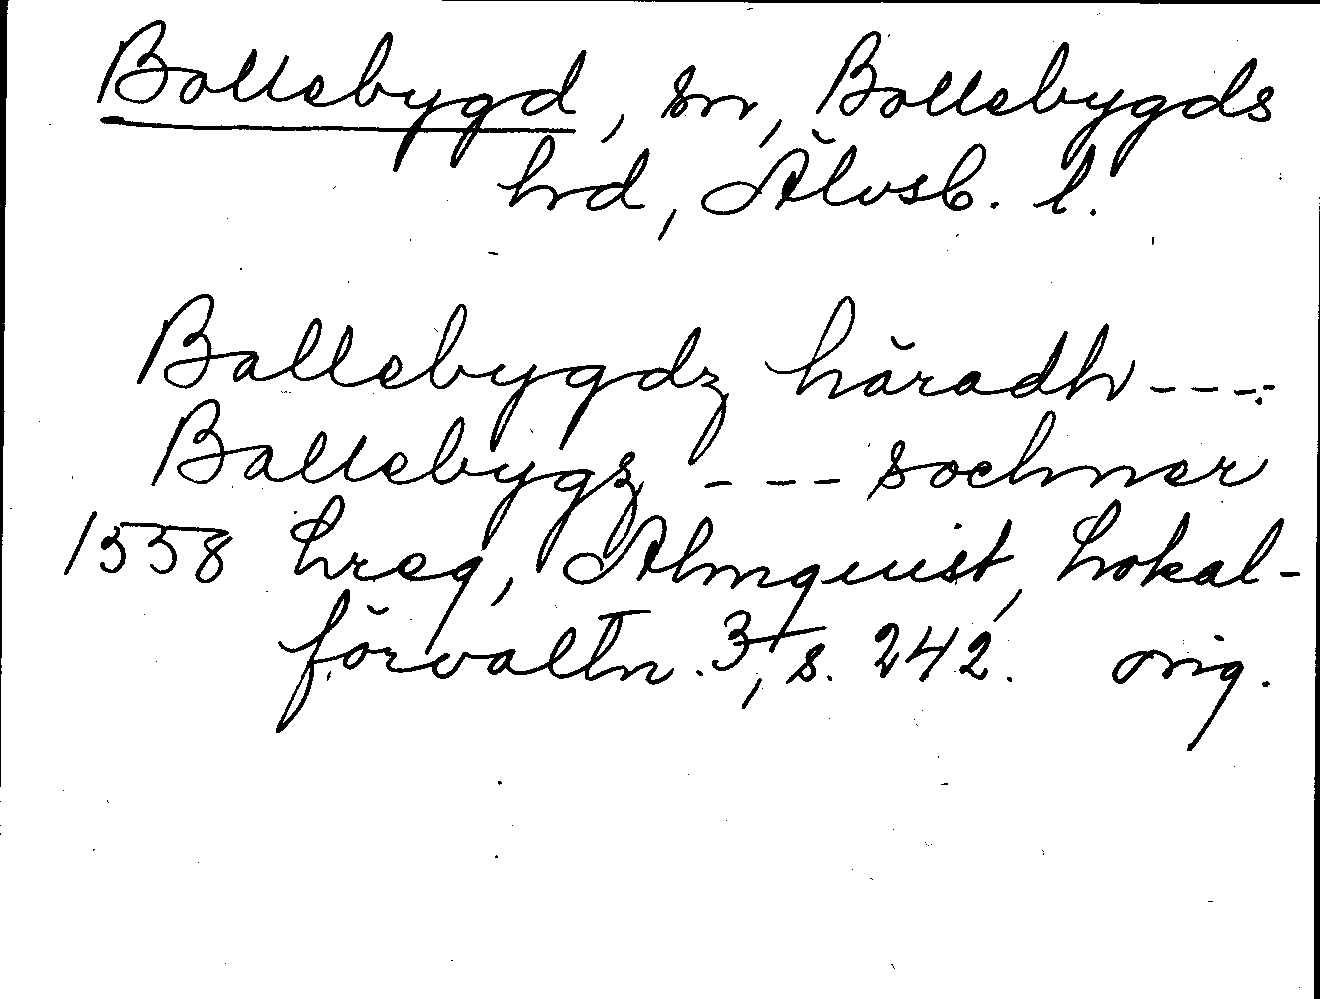 Bollebygd, sn, Bollebygds
hrd, Älvsb. l.
Ballebygdz häradh ----
Ballebygz --- sochner
1558 hreg, Almquist, Lokal-
förvaltn. 3, s. 242. orig.